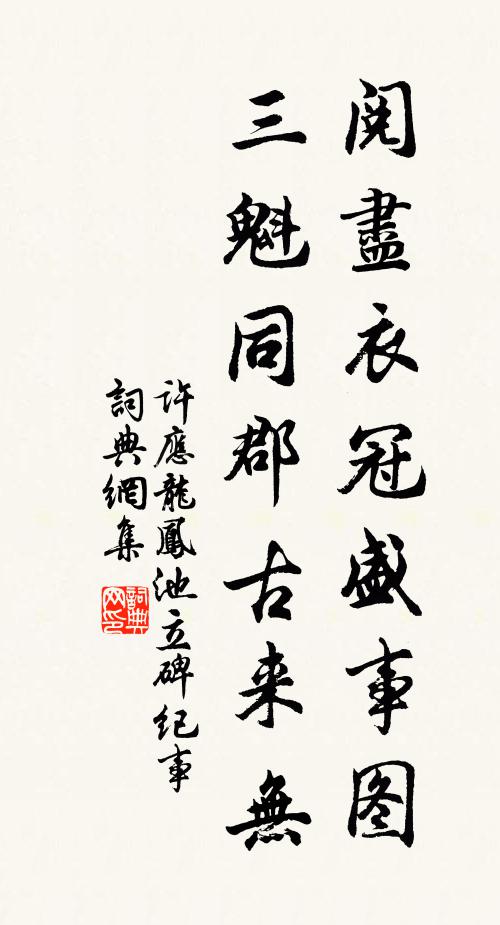 閱盡衣冠盛事图
三魁同郡古来無
许應龍鳳池立碑纪事
詞典網集
詞典网印